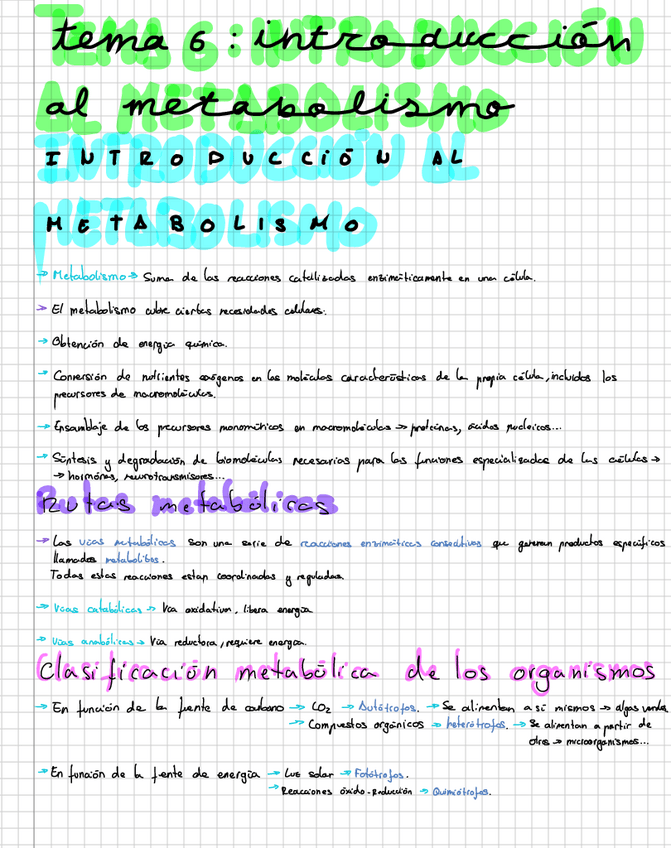 tema 6: introducción
al metabolismo
INTRODUCCIÓN AL
METABOLISMO
→ Metabolismo → Suma de las reacciones catalizadas enzimáticamente en una célula.
→ El metabolismo cubre ciertas necesidades celulares.
→ Obtención de energía química.
→ Conversión de nutrientes exógenos en las moléculas características de la propia célula, incluidos los
precursores de macromoléculas.
→ Ensamblaje de los precursores monoméricos en macromoléculas → proteínas, ácidos nucleicos...
→ Síntesis y degradación de biomoléculas necesarias para las funciones especializadas de las células →
→ hormonas, neurotransmisores...
Rutas metabólicas
→ Las vías metabólicas son una serie de reacciones enzimáticas consecutivas que generan productos específicos
llamados metabolitos.
Todas estas reacciones estan coordinadas y reguladas.
→ Vías catabólicas → Vía oxidativa, libera energía
→ Vías anabólicas → Vía reductora, requiere energía.
Clasificación metabólica de los organismos
→ En función de la fuente de carbono → CO2 → Autótrofos. → Se alimentan a sí mismos → algas verdes
→ Compuestos orgánicos → heterótrofos. → Se alimentan a partir de
otros → microorganismos...
→ En función de la fente de energía → Luz solar → Fotótrofos.
→ Reacciones óxido-Reducción → Quimiótrofos.